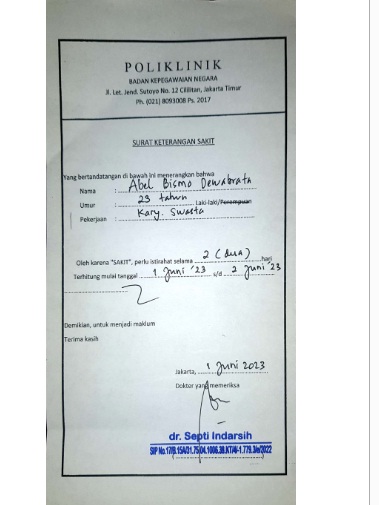 POLIKLINIK
BADAN KEPEGAWAIAN NEGARA
Jl. Let. Jend. Sutoyo No. 12 Cililitan, Jakarta Timur
Ph. (021) 8093008 Ps. 2017
SURAT KETERANGAN SAKIT
Yang bertandatangan di bawah ini menerangkan bahwa
Nama : Abel Bismo Dewabrata
Umur : 23 tahun Laki-laki/Perempuan
Pekerjaan : Kary. Swasta
Oleh karena "SAKIT", perlu istirahat selama 2 (dua) hari
Terhitung mulai tanggal 1 Juni '23 s/d 2 Juni '23
Demikian, untuk menjadi maklum
Terima kasih
Jakarta, 1 Juni 2023
Dokter yang memeriksa
dr. Septi Indarsih